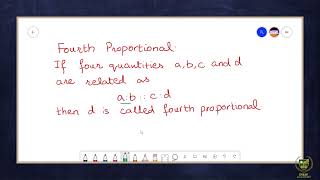 Fourth Proportional
If four quantities a,b,c and d
are related as
a:b :: c:d
then d is called fourth proportional